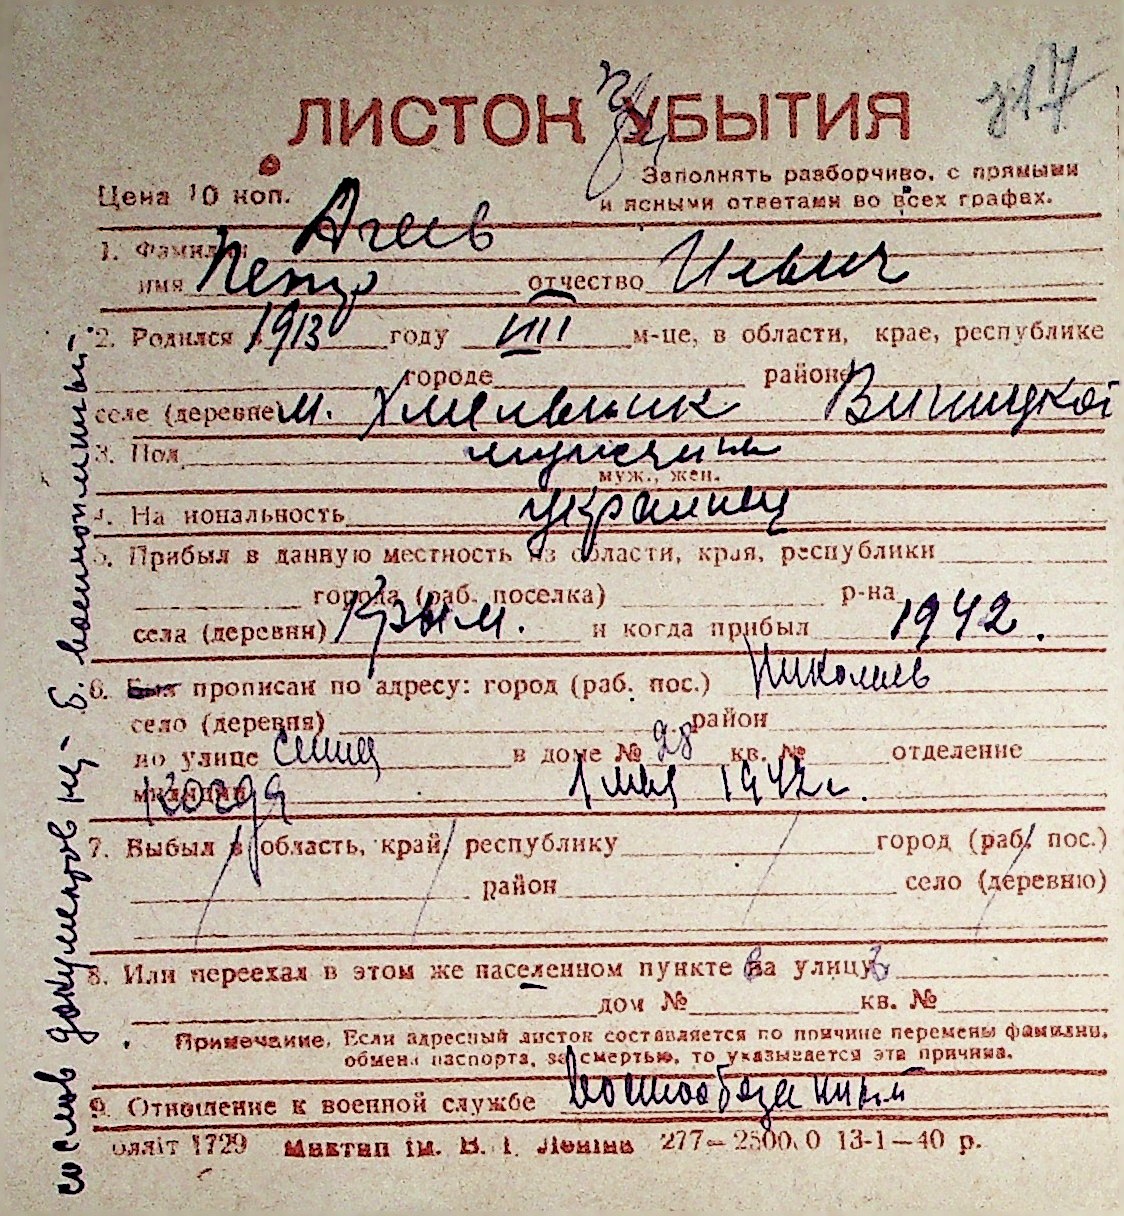 317
ЛИСТОК УБЫТИЯ
Цена 10 коп.
Заполнять разборчиво, с прямыми
и ясными ответами во всех графах.
1. Фамилия Агеев
имя Петр отчество Ильич
2. Родился в 1913 году VIII м-це, в области, крае, республике
городе районе
селе (деревне) м. Хмельник Виницкой
3. Пол мужчина
муж., жен.
4. Национальность украинец
5. Прибыл в данную местность из области, края, республики
города (раб. поселка) р-на
села (деревни) Крым. и когда прибыл 1942.
6. Был прописан по адресу: город (раб. пос.) Николаев
село (деревня) район
по улице в доме № 28 кв. № отделение
милиции когда 1 мая 1942 г.
7. Выбыл в область, край, республику город (раб. пос.)
район село (деревню)
8. Или переехал в этом же населенном пункте на улицу
дом № кв. №
Примечание. Если адресный листок составляется по причине перемены фамилии,
обмена паспорта, за смертью, то указывается эта причина.
9. Отношение к военной службе Военнообязанный
Облліт 1729 Миктип ім. В. І. Леніна 277—2500.0 13-1—40 р.
документов нет - б. военнопленный